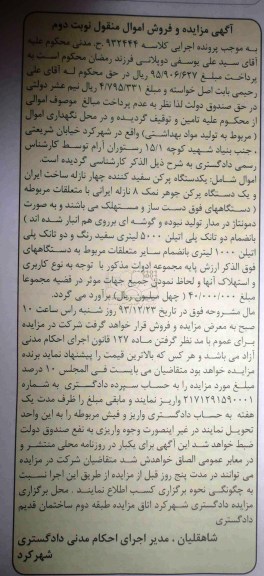 آگهی مزایده و فروش اموال منقول نوبت دوم
به موجب پرونده اجرایی کلاسه ۹۳۲۴۴۴ ح.مدنی محکوم علیه
آقای سید علی یوسفی دوپلانی فرزند رمضان محکوم است به
پرداخت مبلغ ۹۵/۹۰۶/۶۲۷ ریال در حق محکوم له آقای علی
رحیمی بابت اصل خواسته و مبلغ ۴/۷۹۵/۳۳۱ ریال نیم عشر دولتی
در حق صندوق دولت لذا نظر به عدم پرداخت مبالغ موصوف اموالی
از محکوم علیه تامین و توقیف گردیده و در محل نگهداری اموال
( مربوط به تولید مواد بهداشتی) واقع در شهرکرد خیابان شریعتی
جنب بنیاد شهید کوچه ۱۵/۱ رستوران آرام توسط کارشناس
رسمی دادگستری به شرح ذیل الذکر کارشناسی گردیده است.
اموال شامل: یکدستگاه پرکن سفید کننده چهار نازله ساخت ایران
و یک دستگاه پرکن جوهر نمک ۸ نازله ایرانی با متعلقات مربوطه
( دستگاههای فوق دست ساز و مستهلک می باشند و به صورت
دمونتاژ در مدار تولید نبوده و گوشه ای برروی هم انبار شده اند )
بانضمام دو تانک پلی اتیلن ۵۰۰۰ لیتری سفید رنگ و دو تانک پلی
اتیلن ۱۰۰۰ لیتری بانضمام سایر متعلقات مربوط به دستگاههای
فوق الذکر ارزش پایه مجموعه ادوات مذکور با توجه به نوع کاربری
و استهلاک آنها و لحاظ نمودن جمیع جهات موثر در قضیه مجموعا
مبلغ ۴۰/۰۰۰/۰۰۰ ( چهل میلیون ریال) برآورد می گردد.
مال مشروحه فوق در تاریخ ۹۳/۱۲/۲۳ روز شنبه راس ساعت ۱۰
صبح به معرض مزایده و فروش قرار خواهد گرفت شرکت در مزایده
برای عموم با مد نظر گرفتن ماده ۱۲۷ قانون اجرای احکام مدنی
آزاد می باشد و هر کس که بالاترین قیمت را پیشنهاد نماید برنده
مزایده خواهد بود متقاضیان می بایست فی المجلس ۱۰ درصد
مبلغ مورد مزایده را به حساب سپرده دادگستری به شماره
۲۱۷۱۲۹۱۵۹۰۰۰۱ واریز نمایند و مابقی مبلغ را ظرف مدت یک
هفته به حساب دادگستری واریز و فیش مربوطه را به این واحد
تحویل نمایند در غیر اینصورت وجوه واریزی به نفع صندوق دولت
ضبط خواهد شد این آگهی برای یکبار در روزنامه محلی منتشر و
در معابر عمومی الصاق خواهدش شد متقاضیان شرکت در مزایده
می توانند در مدت پنج روز قبل از مزایده از طریق این اجرا نسبت
به چگونگی نحوه برگزاری کسب اطلاع نمایند . محل برگزاری
مزایده دادگستری شهرکرد اتاق مزایده طبقه دوم ساختمان قدیم
دادگستری
شاهقلیان ، مدیر اجرای احکام مدنی دادگستری
شهرکرد